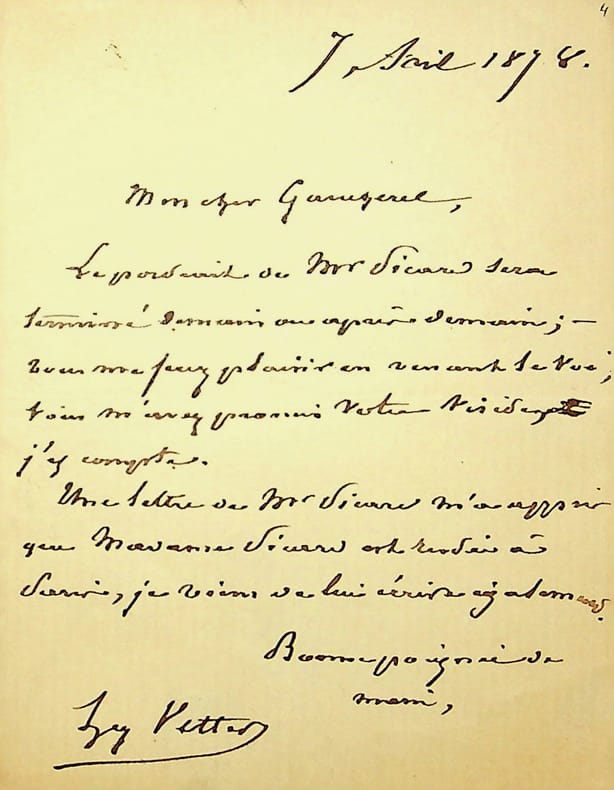 4
7 Avril 1878.
Mon cher Gaucherel,
Le portrait de Mr Sicard sera
terminé demain ou après demain; –
vous me ferez plaisir en venant le voir;
vous m'avez promis votre visite,
j'y compte.
Une lettre de Mr Sicard m'a appris
que Madame Sicard est rentrée à
Paris, je viens de lui écrire également.
Bonne poignée de
main,
Hey Vetter